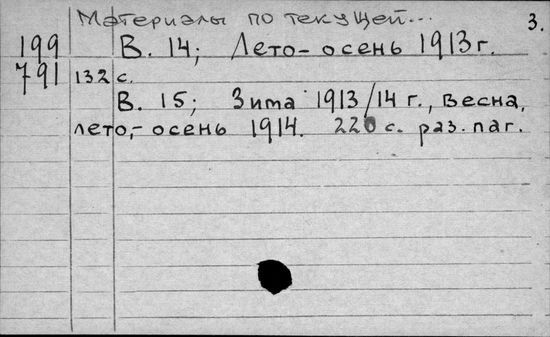 Материалы по текущей... 3.
199 В. 14; Лето-осень 1913 г.
791 132 с.
В. 15; Зима 1913/14 г., весна,
лето,-осень 1914. 220 с. раз. паг.